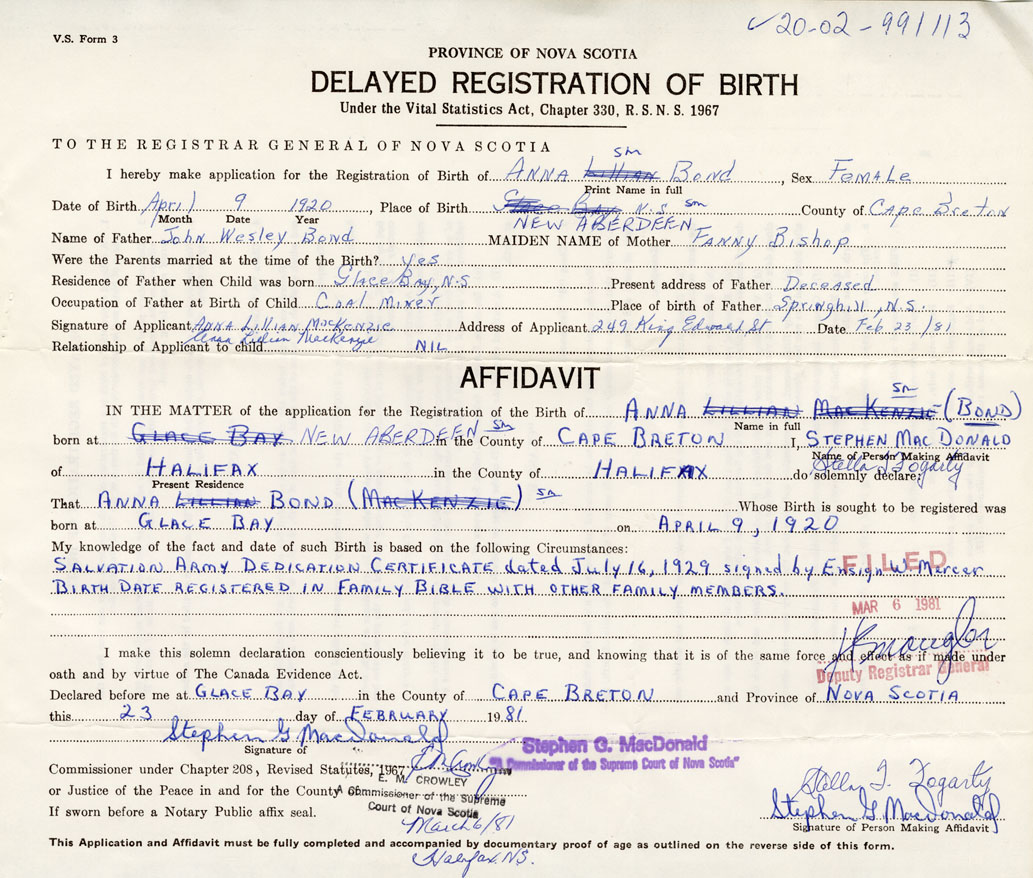 V.S. Form 3
✓20-02-991113
PROVINCE OF NOVA SCOTIA
DELAYED REGISTRATION OF BIRTH
Under the Vital Statistics Act, Chapter 330, R.S.N.S. 1967
TO THE REGISTRAR GENERAL OF NOVA SCOTIA
Sm
I hereby make application for the Registration of Birth of Anna Lillian Bond, Sex Female
Print Name in full
Date of Birth April 9 1920, Place of Birth Glace Bay N.S. Sm County of Cape Breton
Month Date Year NEW ABERDEEN
Name of Father John Wesley Bond MAIDEN NAME of Mother Fanny Bishop
Were the Parents married at the time of the Birth? yes
Residence of Father when Child was born Glace Bay, N.S Present address of Father Deceased
Occupation of Father at Birth of Child Coal Miner Place of birth of Father Springhill, N.S.
Signature of Applicant Anna Lillian MacKenzie Address of Applicant 249 King Edward St Date Feb 23/81
Anna Lillian MacKenzie
Relationship of Applicant to child NIL
AFFIDAVIT
Sm
IN THE MATTER of the application for the Registration of the Birth of ANNA LILLIAN MACKENZIE (BOND)
Name in full
born at GLACE BAY NEW ABERDEEN Sm in the County of CAPE BRETON I, STEPHEN MAC DONALD
Name of Person Making Affidavit
Stella I Fogarty
of HALIFAX in the County of HALIFAX do solemnly declare;
Present Residence
That ANNA LILLIAN BOND (MACKENZIE) Sm Whose Birth is sought to be registered was
born at GLACE BAY on APRIL 9, 1920
My knowledge of the fact and date of such Birth is based on the following Circumstances:
SALVATION ARMY DEDICATION CERTIFICATE dated July 16, 1929 signed by Ensign W Mercer
FILED
BIRTH DATE REGISTERED IN FAMILY BIBLE WITH OTHER FAMILY MEMBERS.
MAR 6 1981
I make this solemn declaration conscientiously believing it to be true, and knowing that it is of the same force and effect as if made under
Deputy Registrar General
oath and by virtue of The Canada Evidence Act.
Declared before me at GLACE BAY in the County of CAPE BRETON and Province of NOVA SCOTIA
this 23 day of FEBRUARY 1981
Stephen G MacDonald
Signature of
Stephen G. MacDonald
"A Commissioner of the Supreme Court of Nova Scotia"
Commissioner under Chapter 208, Revised Statutes, 1967
E. M. CROWLEY
or Justice of the Peace in and for the County
A Commissioner of the Supreme
Court of Nova Scotia
If sworn before a Notary Public affix seal.
March 6/81
Stella I. Fogarty
Stephen G MacDonald
Signature of Person Making Affidavit
This Application and Affidavit must be fully completed and accompanied by documentary proof of age as outlined on the reverse side of this form.
Halifax N.S.